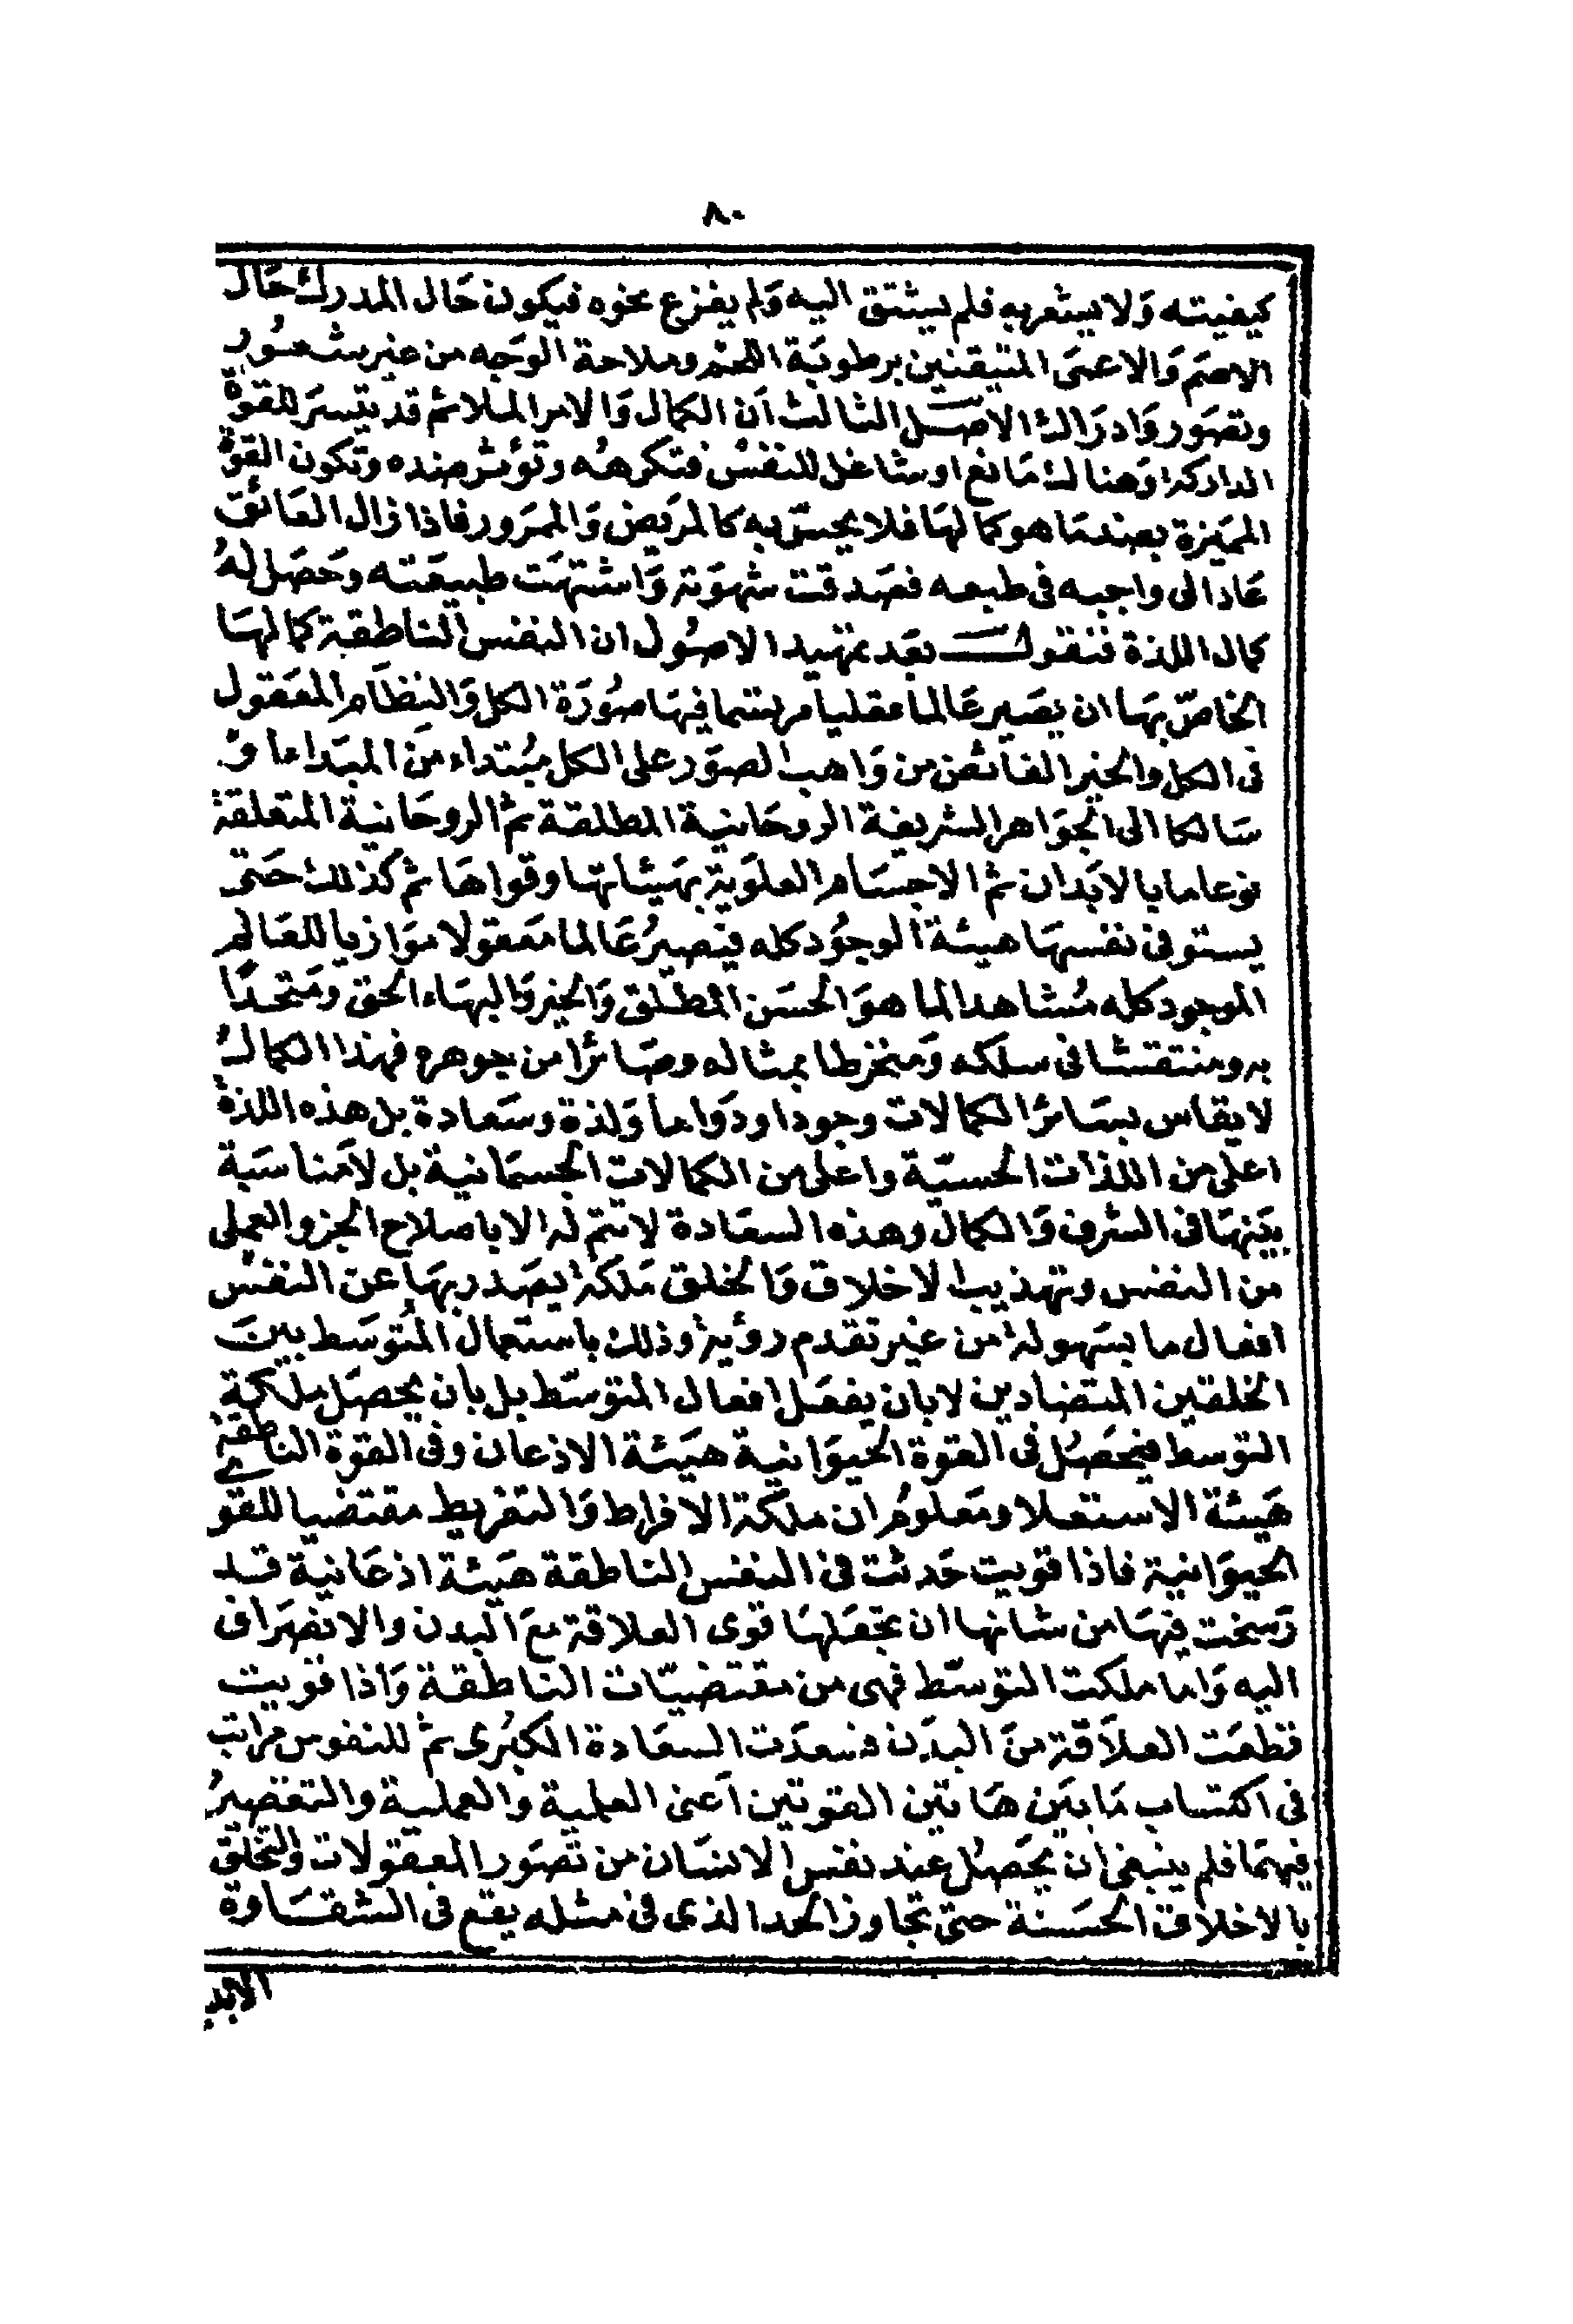 ٨٠
كيفيته وَلا يشعر به فلم يشتق اليه وَلم يفزع نحوه فيكون حَال المدرك حَال
الاصَم وَالاعمَى المتيقنين برطوبَة اللحن وملاحة الوَجه من غير شعُور
وتصَور وَادرَاك الاصَل الثالث اَن الكمال وَالامر الملائم قد يتيسرَ للقوة
الداركة وَهناك مَانع او شاغل للنفسْ فتكرهُه وتؤثر ضده وتكون القوّة
المميزة بضد مَا هو كمالهَا فلا يحسّ به كالمريَض وَالممرَور فاذا زال العَائق
عَاد الى واجبه فى طبعه فصَدقت شهوَته وَاشتهَت طبيعَته وحَصَل لهُ
كمال اللذة فنقول بعَد تمهيد الاصُول ان النفس الناطقة كمالهَا
الخاصّ بهَا ان يصَير عَالما عقليا مرتسما فيهَا صُورَة الكل وَالنِظَام المعَقول
فى الكل والخير الفائض من وَاهب الصوَر على الكل مبُتداء مَن المبَداء ما و
سَالكا الى الجوَاهر الشريفة الروحَانية المطلقة ثم الروحَانية المتعلقة
نوعا ما بالابَدان ثم الاجسَام العلوَية بهَيئاتها وقواهَا ثم كذلك حَتى
يستوفى نفسهَا هيئة الوجوُد كله فيَصيرُ عَالما معَقولا موَازيا للعَالم
الموجود كله مُشاهدا لما هوَ الحسَن المطلق وَالخير وَالبهَاء الحق ومَتحدًا
به ومنتقشا فى سلكه وَمنخرطا بمثاله وصَائرًا من جوهره فهذا الكمال
لا يقاس بسَائر الكمالات وجودا ودَواما وَلذة وسَعادة بل هذه اللذة
اعلى من اللذات الحسيّة واعلى من الكمالات الجسمَانية بل لامَناسَبة
بيَنهَا فى الشرف وَالكمال وهذه السعَادة لا تتم له الا باصلاح الجزو العملى
من النفس وتهذيب الاخلاق وَالخلق مَلكة يصَدر بهَا عن النفسْ
افعال ما بسَهولة من غير تقدم روُية وذلك باستعمال المُتوسَط بينَ
الخلقين المتضادين لا بان يفعَل افعال المتوسّط بل بان يحصَل ملَكَة
التوسط فيحصَُل فى القوة الحيوَانية هيَئة الاذعان وفى القوة الناطقة
هَيئة الاستعلا ومَعلومُ ان ملكَة الافراط وَالتفريط مقتضيا للقوى
الحيوَانية فاذا قويت حَدثت فى النفس الناطقة هيَئة اذعَانية قد
رَسخت فيهَا من شانها ان تجعَلهَا قوى العلاقة معَ البدن والانصَراف
اليه وَاما ملكت التوسّط فهى من مقتضيّات الناطقة وَاذا قويت
قطعَت العلاَقة منَ البدَن فسعدَت السعَادة الكبُرى ثم للنفوس مراتب
فى اكتساب مَا بيَن هَاتين القوتين اَعنى العلمية والعملية والتقصيرُ
فيهمَا فلم ينبغى ان يحَصُل عند نفس الانسَان من تصَور المعقولات والتخلق
بالاخلاق الحسَنة حتى تجاوز الحد الذى فى مثله يقع فى الشقَاوة
الابد